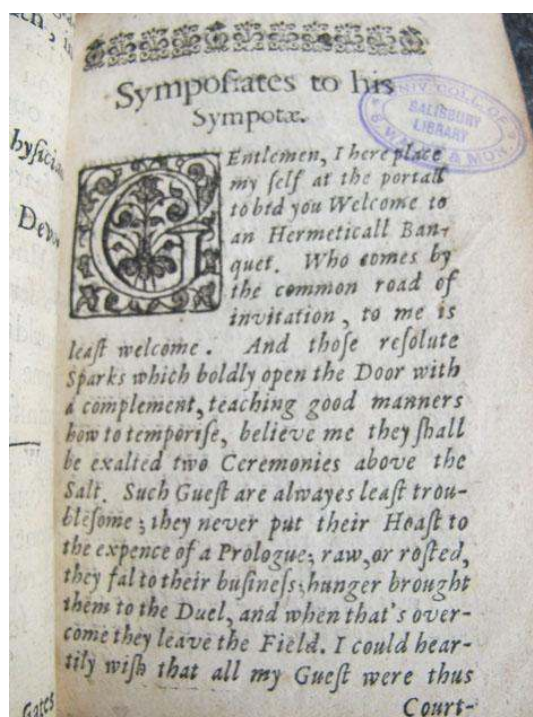 Symposiates to his
Sympotæ.
UNIV. COLL. OF
SALISBURY
LIBRARY
S. WALES & MON.
GEntlemen, I here place
my ſelf at the portall
to bid you Welcome to
an Hermeticall Ban-
quet. Who comes by
the common road of
invitation, to me is
leaſt welcome. And thoſe reſolute
Sparks which boldly open the Door with
a complement, teaching good manners
how to temporiſe, believe me they ſhall
be exalted two Ceremonies above the
Salt. Such Gueſt are alwayes leaſt trou-
bleſome; they never put their Hoaſt to
the expence of a Prologue; raw, or roſted,
they fal to their buſineſs; hunger brought
them to the Duel, and when that's over-
come they leave the Field. I could hear-
tily wiſh that all my Gueſt were thus
Court-
Gates